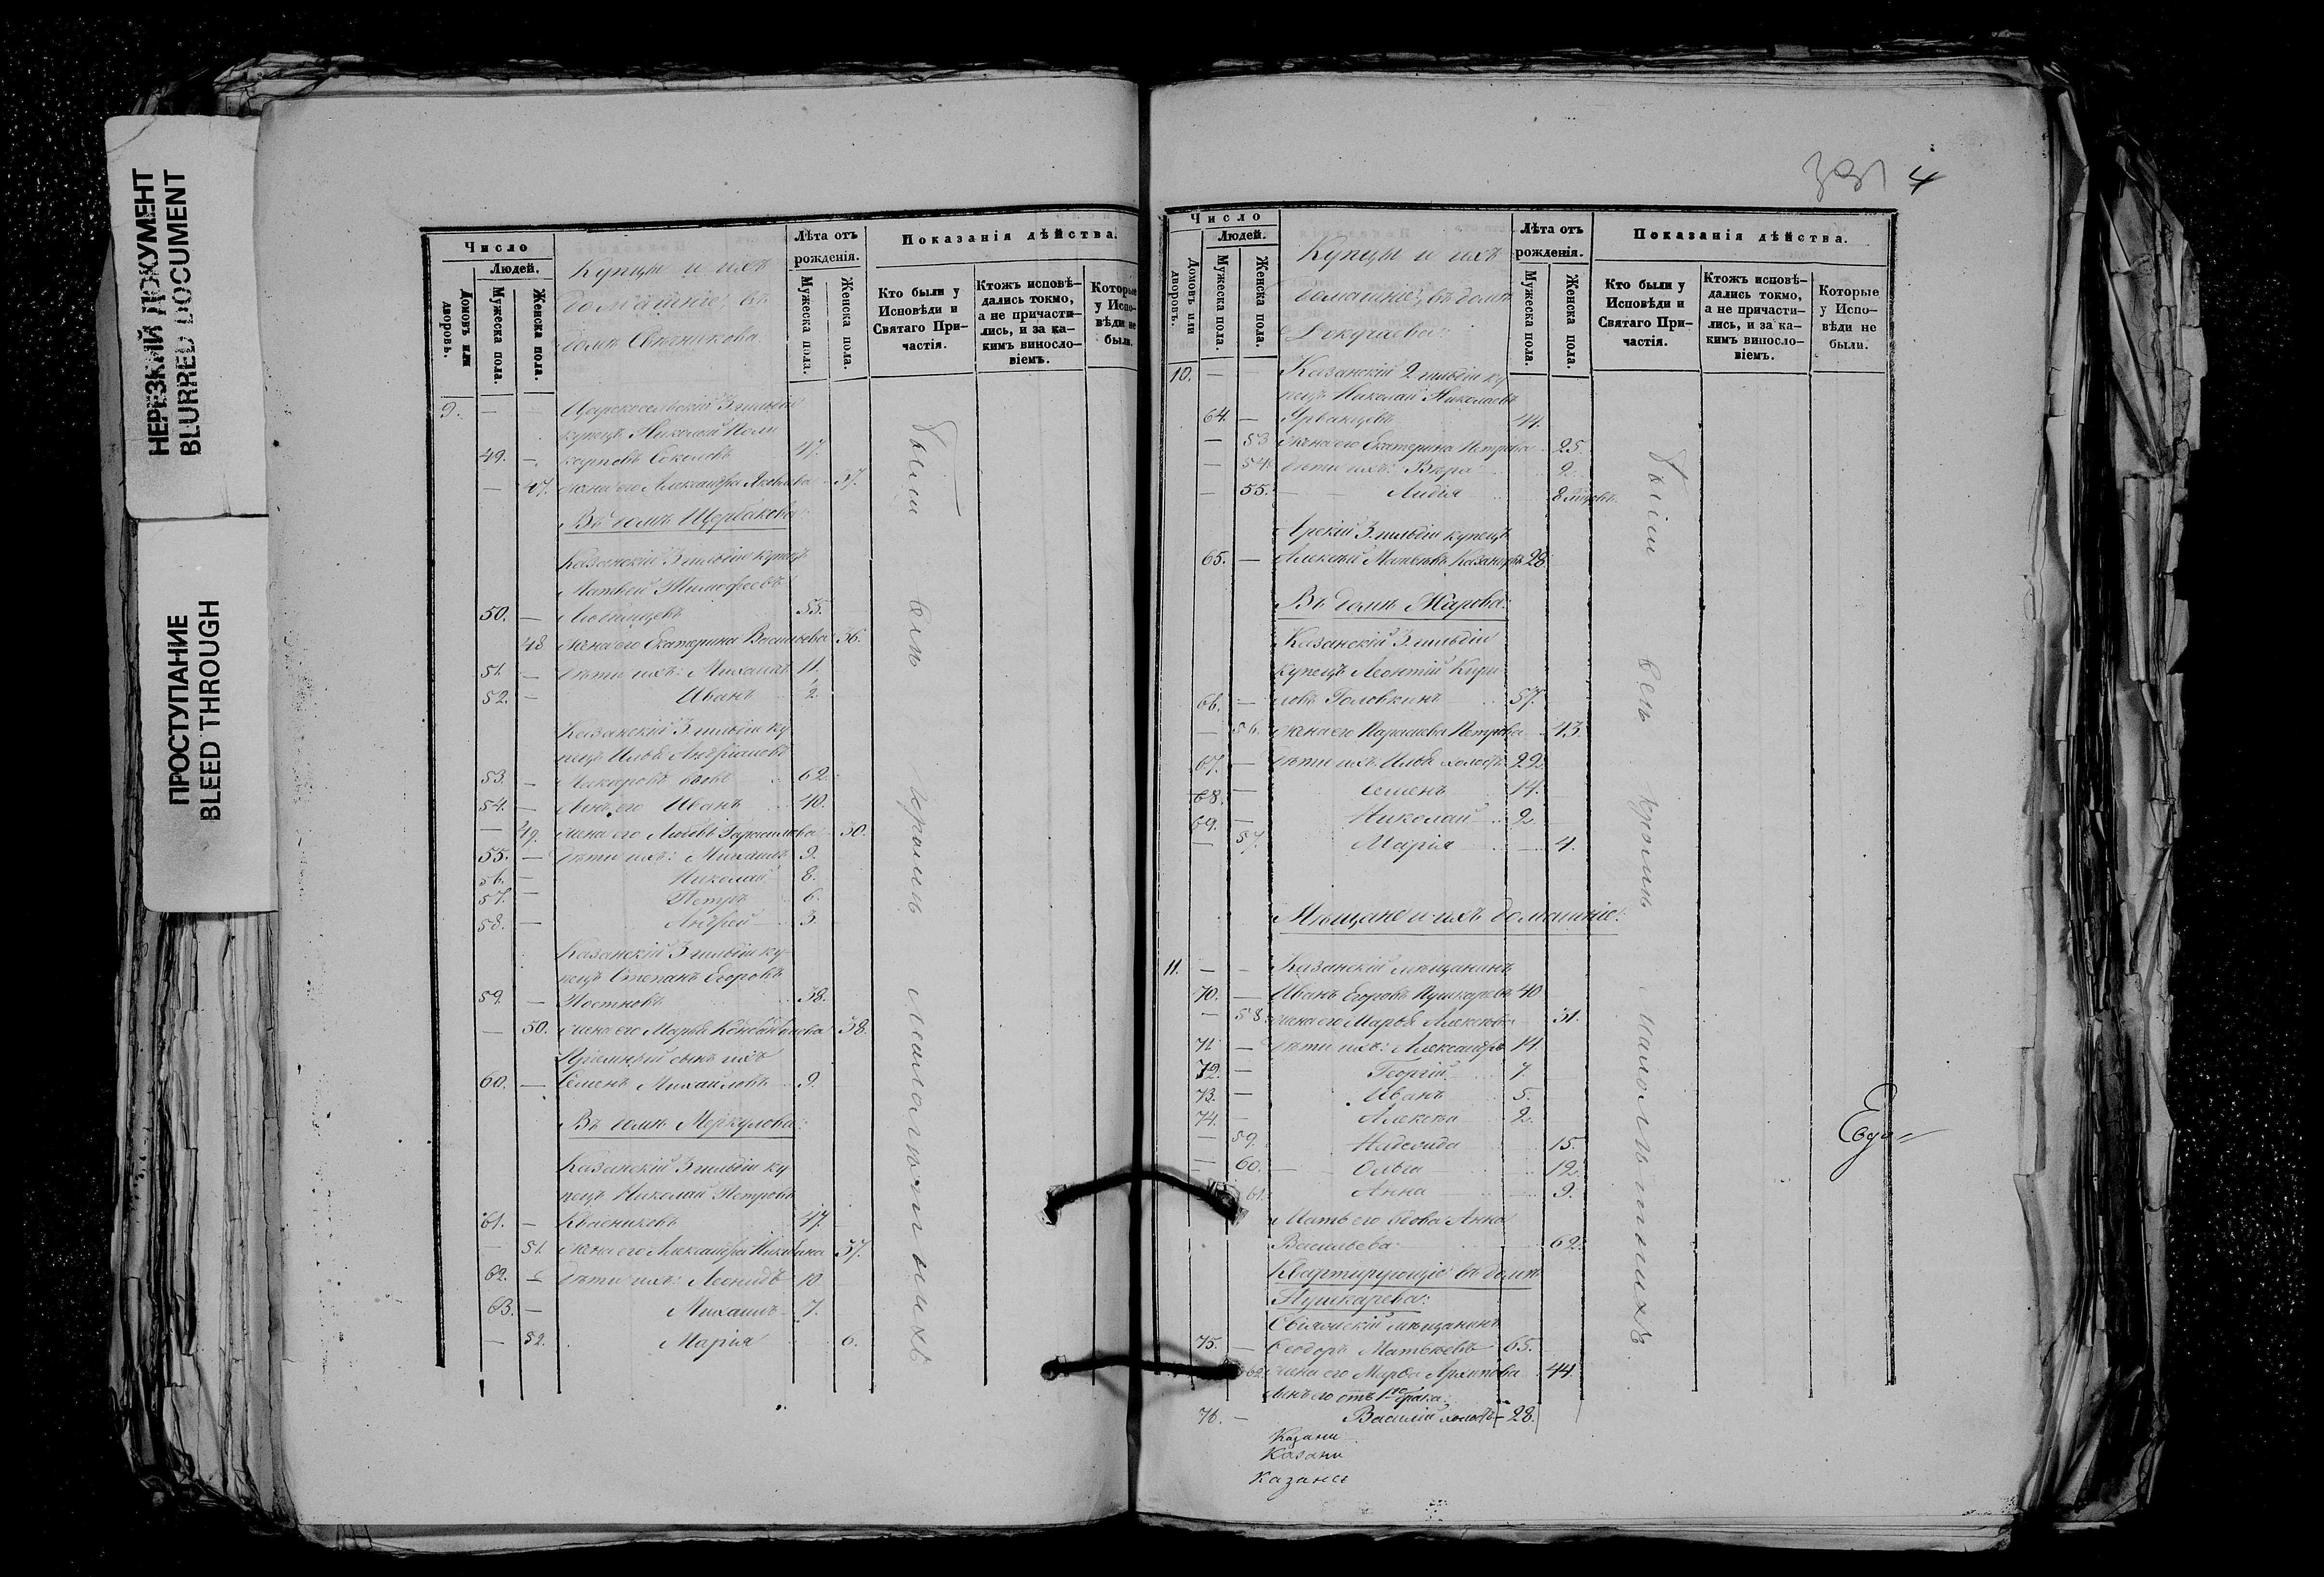 НЕРЕЗКИЙ ДОКУМЕНТ
BLURRED DOCUMENT
ПРОСТУПАНИЕ
BLEED THROUGH
Число
Людей.
Домовъ или дворовъ.
Мужеска пола.
Женска пола.
Купцы и ихъ
домашніе, въ
домѣ Свѣчникова.
Лѣта отъ рожденія.
Мужеска пола.
Женска пола.
Показанія дѣйства.
Кто были у Исповѣди и Святаго Причастія.
Ктожъ исповѣдались токмо, а не причастились, и за какимъ винословіемъ.
Которые у Исповѣди не были.
9. — — Царскосельскій 3 гильдіи
купецъ Николай Поли
49. — карповъ Соколовъ 47.
— 47. жена его Александра Яковлева 37.
Въ домѣ Щербакова:
Казанскій 3 гильдіи купецъ
Матвей Тимофеевъ
50. — 55.
— 48 жена его Екатерина Васильева 36.
51. — дѣти ихъ: Михаилъ 11.
52. — Иванъ 2.
Казанскій 3 гильдіи ку
пецъ Илья Андріановъ
53. — Макаровъ вдовъ 62.
54. — сынъ его Иванъ 40.
— 49. жена его Любовь Герасимова 30.
55. — дѣти ихъ: Михаилъ 9.
56. — Николай 8.
57. — Петръ 6.
58. — Андрей 3.
Казанскій 3 гильдіи ку
пецъ Степанъ Егоровъ
59. — Постновъ 38.
— 50. жена его Марья 38.
Пріемный сынъ ихъ
60. — Семенъ Михайловъ 9.
Въ домѣ Меркулова:
Казанскій 3 гильдіи ку
пецъ Николай Петровъ
61. — Квасниковъ 47.
— 51. жена его Александра Никитина 37.
62. — дѣти ихъ: Леонидъ 10
63. — Михаилъ 7.
— 52. Марія 6.
были всѣ кромѣ малолѣтныхъ
391 4
Число
Людей.
Домовъ или дворовъ.
Мужеска пола.
Женска пола.
Купцы и ихъ
домашніе, въ домѣ
Докучаева:
Лѣта отъ рожденія.
Мужеска пола.
Женска пола.
Показанія дѣйства.
Кто были у Исповѣди и Святаго Причастія.
Ктожъ исповѣдались токмо, а не причастились, и за какимъ винословіемъ.
Которые у Исповѣди не были.
10. — — Казанскій 2 гильдіи ку
пецъ Николай Николаевъ
64. — 44.
— 53 жена его Екатерина Петрова 25.
— 54. дѣти ихъ: Вѣра 2.
— 55. Лидія 8
Арскій 3 гильдіи купецъ
65. — Алексѣй Матвѣевъ Казанцевъ 28.
Въ домѣ Жарова:
Казанскій 3 гильдіи
купецъ Леонтій Кири
66. — ловъ Головкинъ 57.
— 56. жена его Параскева Петрова 43.
67. — дѣти ихъ: Илья холостъ 22
68. — Семенъ 14.
69. — Николай 2.
— 57. Марія 4.
Мѣщане и ихъ домашніе:
11. — — Казанскій мѣщанинъ
70. — Иванъ Егоровъ Пушкаревъ 40
— 58. жена его Марья Алексѣева 31.
71. — дѣти ихъ: Александръ 14
72. — Георгій 7.
73. — Иванъ 5.
74. — Алексѣй 2.
— 59. Надежда 15.
— 60. Ольга 12.
61. Анна 9.
Мать его вдова Анна
Васильева 62.
Квартирующіе въ домѣ
Пушкарева:
Свіяжскій мѣщанинъ
75. — Ѳеодоръ Матвѣевъ 65.
62. жена его Марѳа Архипова 44.
сынъ его отъ 1го брака:
76. — Василій холостъ 28.
были всѣ кромѣ малолѣтнихъ.
Евдо=
Казани
Казани
Казанс